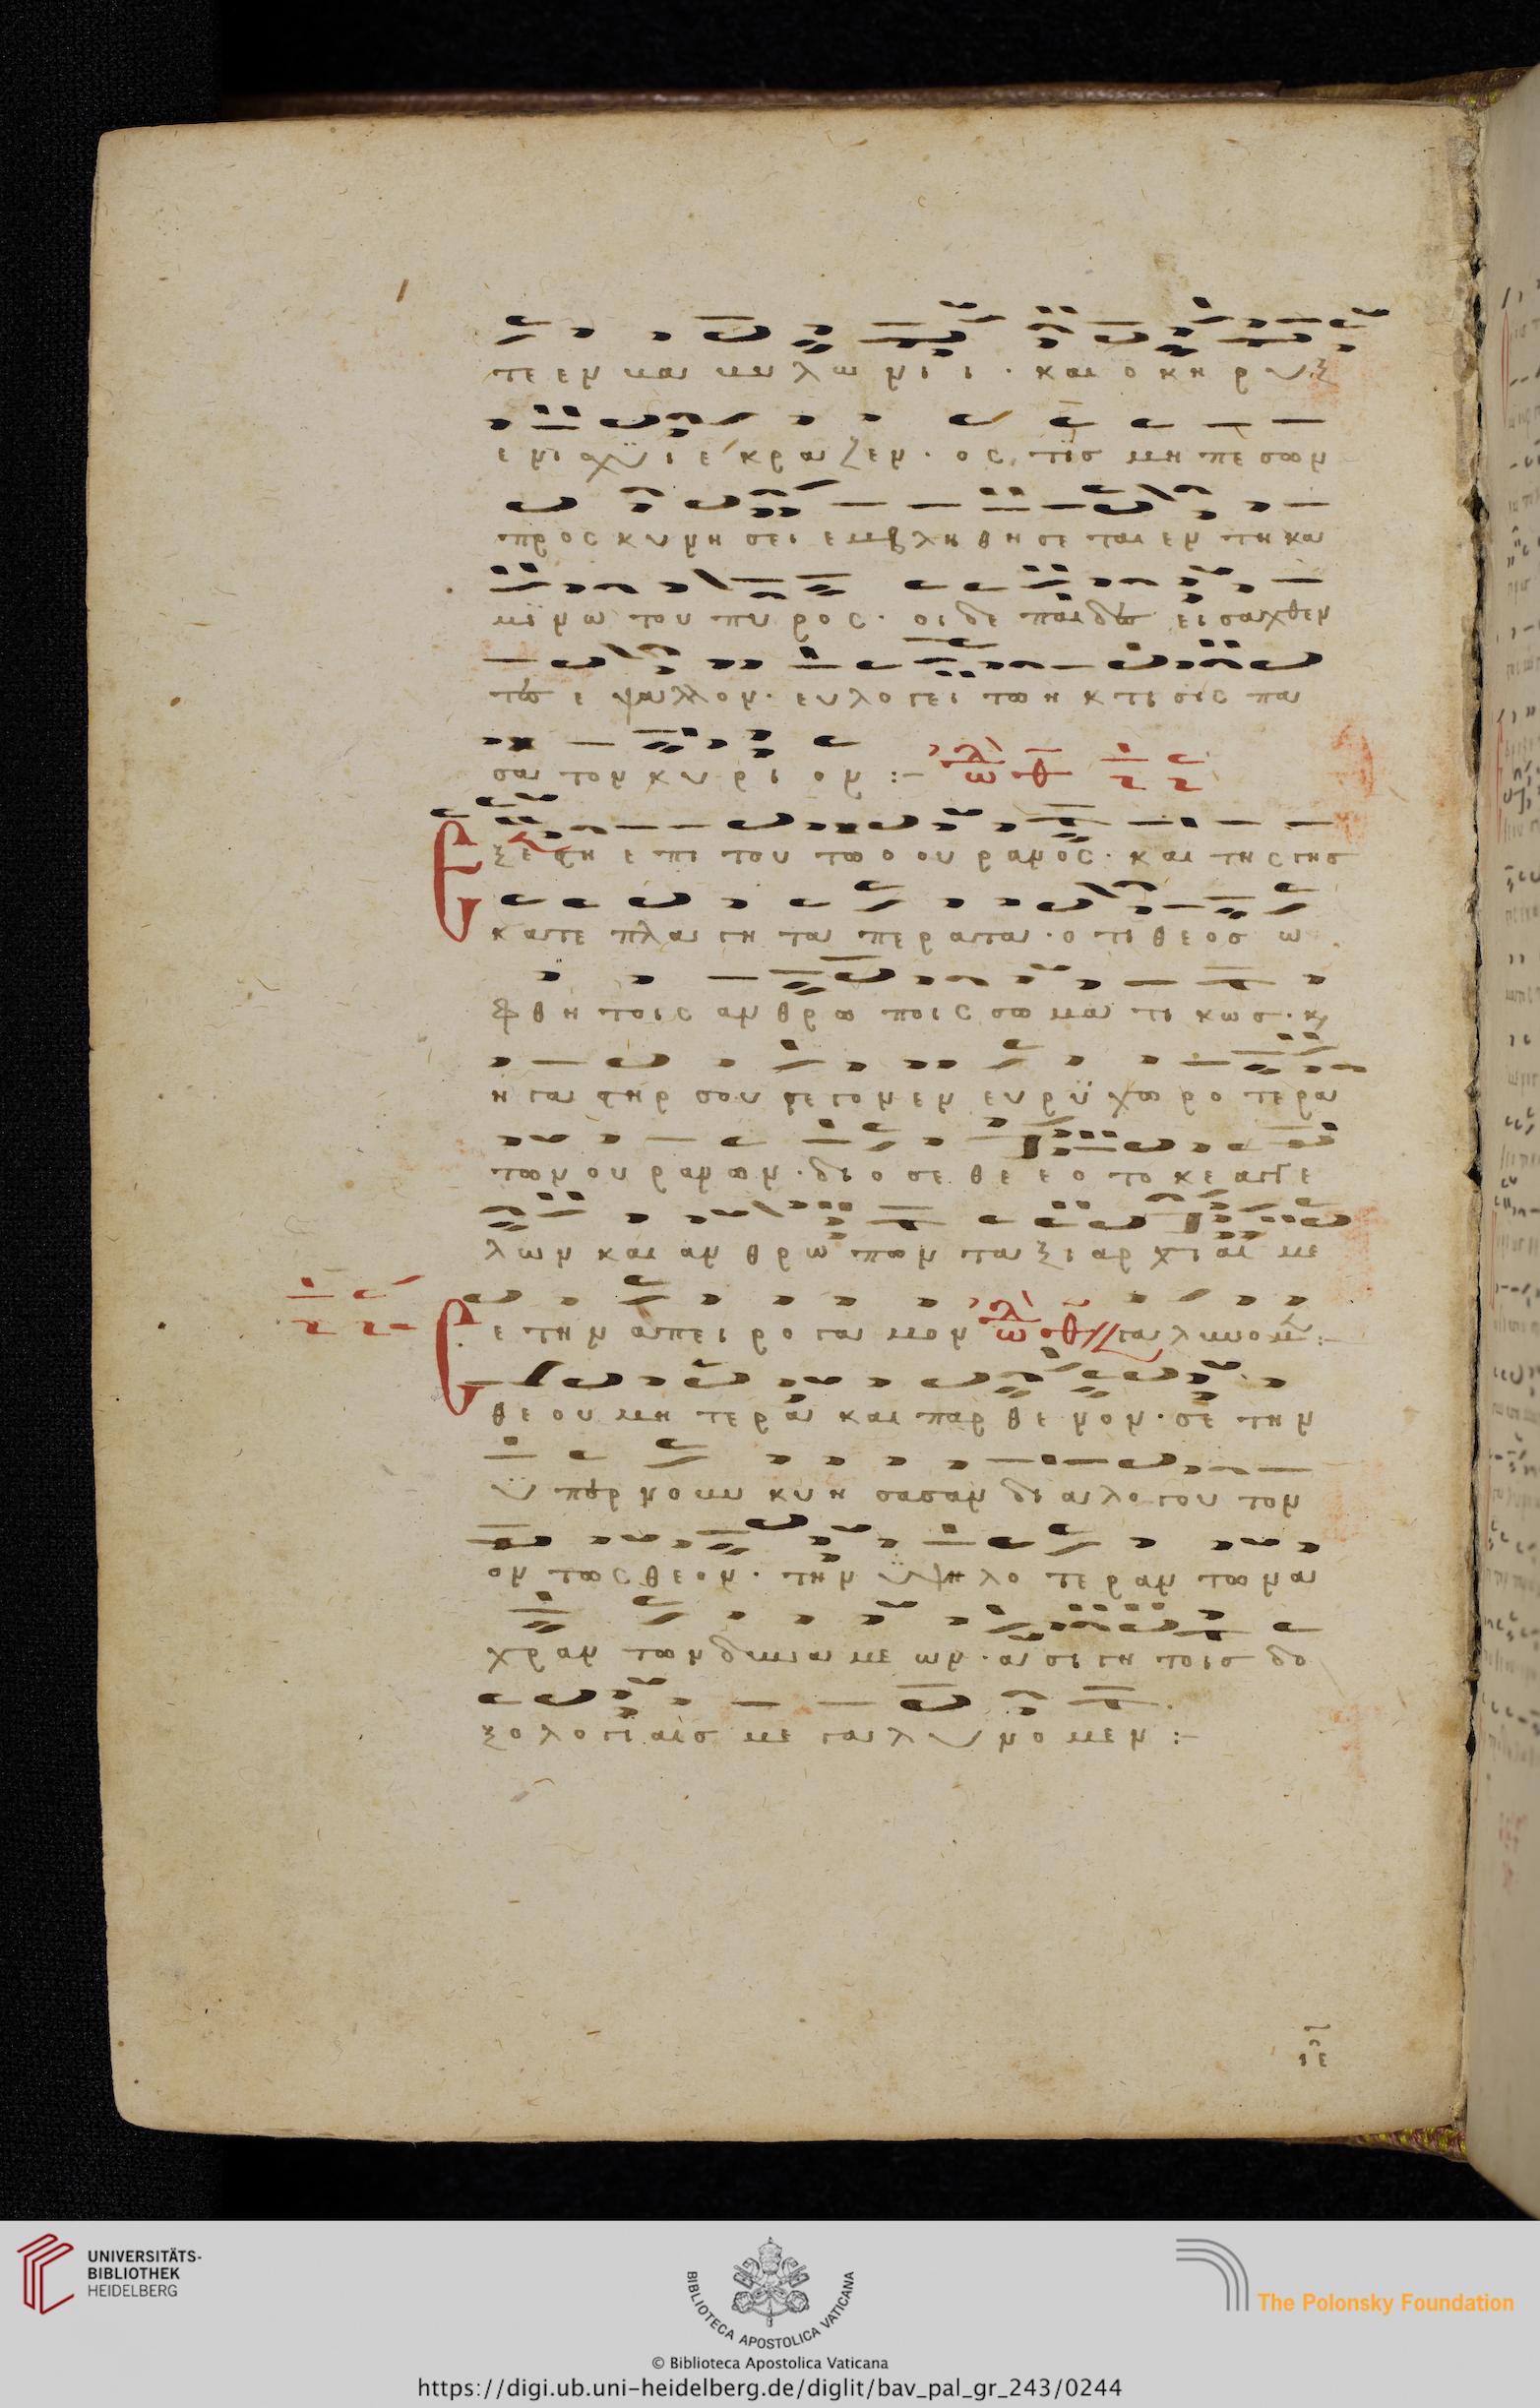 τε εν μα μα λω νι ι · και ο κη ρυξ
ε νι σχυι ε κρα ζεν · ος τις μη πε σων
προς κυ νη σει εμβλη θη σε ται εν τη κα
μι νω του πυ ρος · οι δε παιδες εισαχθεν
τες ε ψαλλον · ευλο γει τω η κτι σις πα
σα τον κυ ρι ον :-
Ξε στη ε πι του τω ο ου ρανος · και της γης
κατε πλα γη τα περατα · ο τι θεος ω
φθη τοις αν θρω ποις σω μα τι κως · κ
η γαστηρ σου γεγονεν ευρυ χω ρο τερα
των ου ραν ων · διο σε θε ε ο το κε αγγε
λων και αν θρω πων τα ξι αρ χιαι με
Σε την απει ρο γα μον γαλυνουσιν :-
θε ου μη τερα και παρ θε νον · σε την
υ περ νουν κυη σασαν δι α λο γου τον
ον τως θεον · την υψη λο τε ραν των α
χραν των δυναμε ων · α σι γη τοις δο
ξολο γι αις με γα λυ νο μεν :-
ιε
UNIVERSITÄTS-
BIBLIOTHEK
HEIDELBERG
BIBLIOTECA APOSTOLICA VATICANA
The Polonsky Foundation
© Biblioteca Apostolica Vaticana
https://digi.ub.uni-heidelberg.de/diglit/bav_pal_gr_243/0244